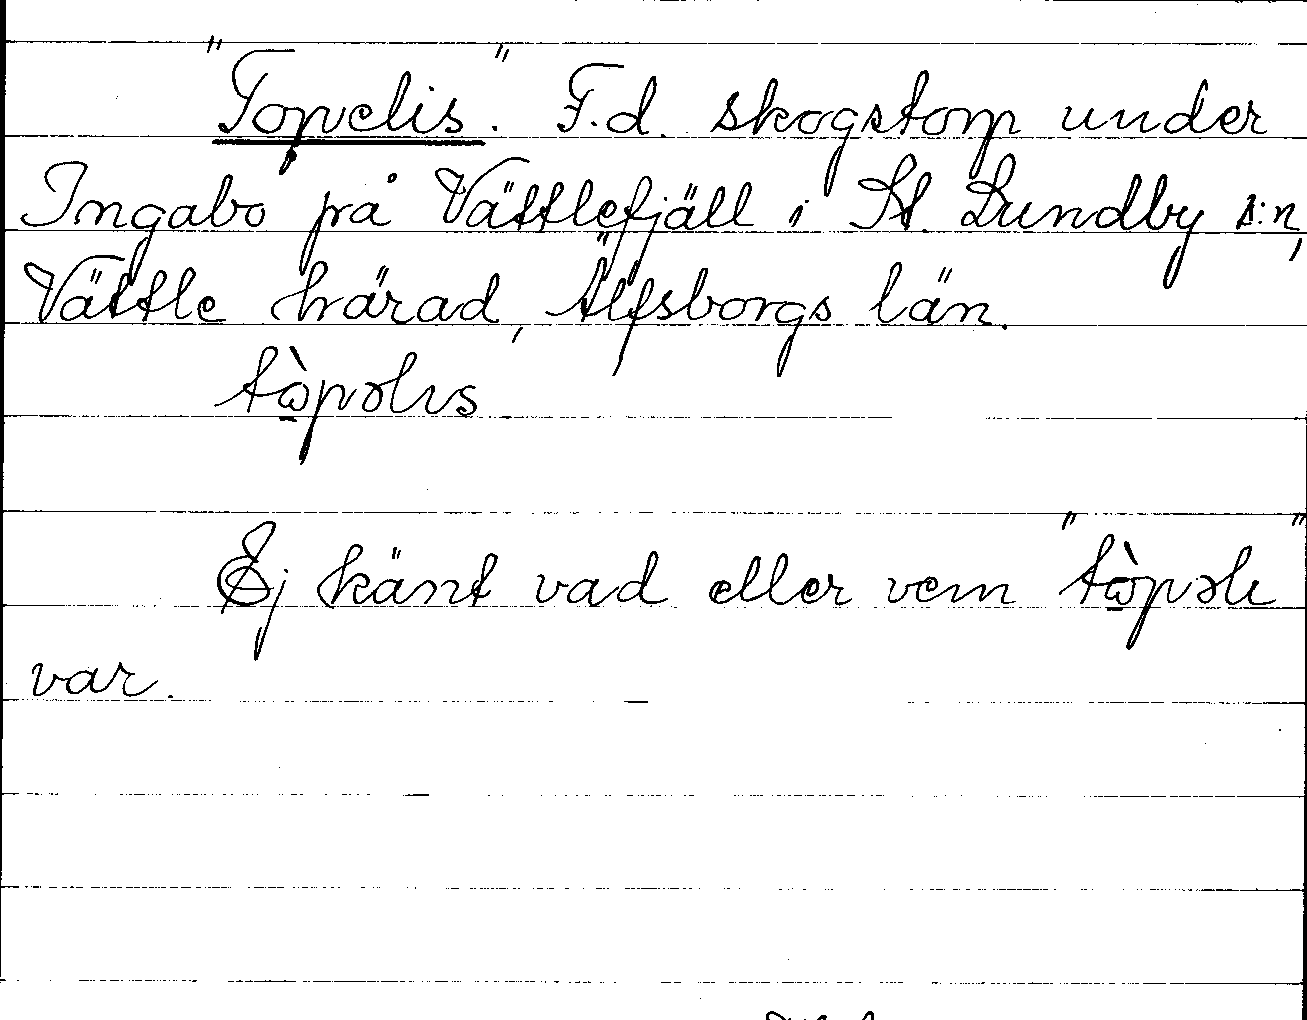 "Topelis". F.d. skogstorp under
Ingabo på Vättlefjäll i St. Lundby s:n,
Vättle härad, Älfsborgs län.
tòpəlıs
Ej känt vad eller vem "tòpəlı"
var.